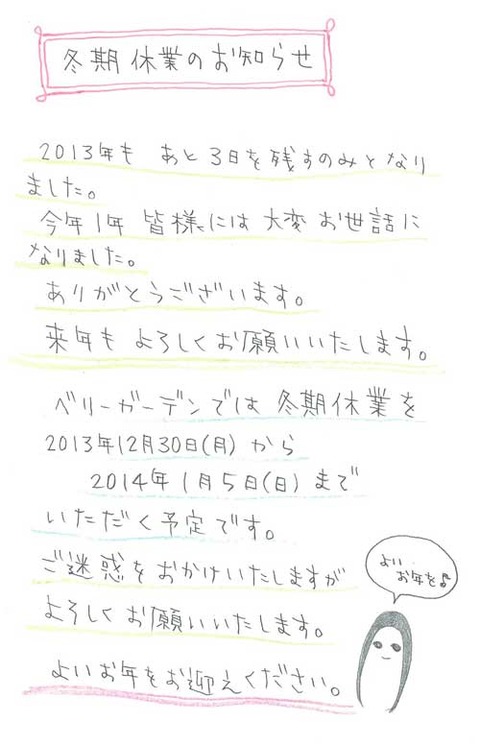 冬期休業のお知らせ
2013年も あと3日を残すのみとなり
ました。
今年1年 皆様には 大変 お世話に
なりました。
ありがとうございます。
来年も よろしくお願いいたします。
ベリーガーデンでは 冬期休業を
2013年12月30日(月) から
2014年 1月5日(日) まで
いただく予定です。
ご迷惑をおかけいたしますが
よろしくお願いいたします。
よいお年をお迎えください。
よい
お年を♪